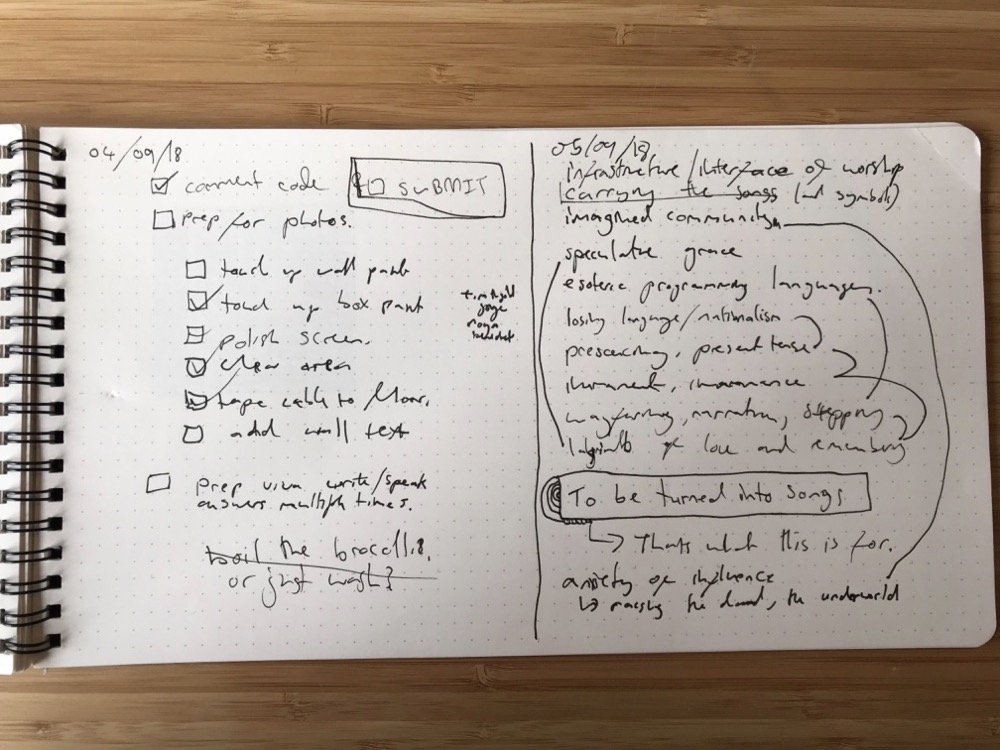 04/09/18
comment code
SUBMIT
Prep for photos.
touch up wall paint
touch up box paint
polish screen.
clear area
tape cable to floor.
add wall text
Prep viva write/speak
answers multiple times.
boil the brocolli?
or just wash?
05/09/18
infrastructure/interface of worship
carrying the songs (and symbols)
imagined community
speculative grace
esoteric programming languages.
losing language/nationalism
presencing, present tense
immanent, immanence
wayfaring, narration, stepping
labyrinth of love and remembering
To be turned into songs
Thats what this is for.
anxiety of influence
raising the dead, the underworld